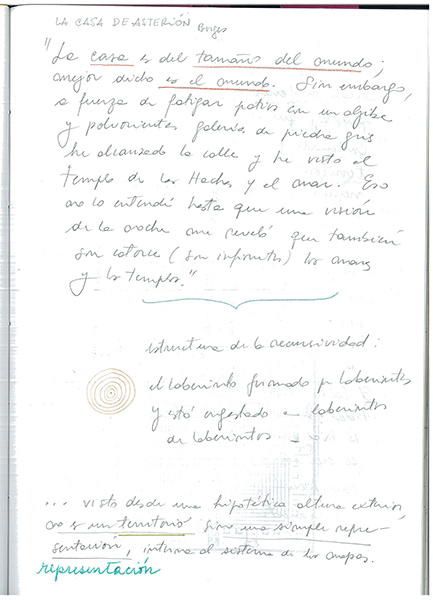 LA CASA DE ASTERIÓN Borges
"La casa es del tamaño del mundo;
mejor dicho es el mundo. Sin embargo,
a fuerza de fatigar patios con un aljibe
y polvorientas galerías de piedra gris
he alcanzado la calle y he visto el
templo de las Hachas y el mar. Eso
no lo entendí hasta que una visión
de la noche me reveló que también
son catorce (son infinitos) los mares
y los templos."
estructura de la recursividad:
el laberinto formado por laberintos
y está engestado en laberintos
de laberintos
... visto desde una hipotética altura exterior,
no es un territorio sino una simple repre-
sentación, interna al sistema de los mapas.
representación